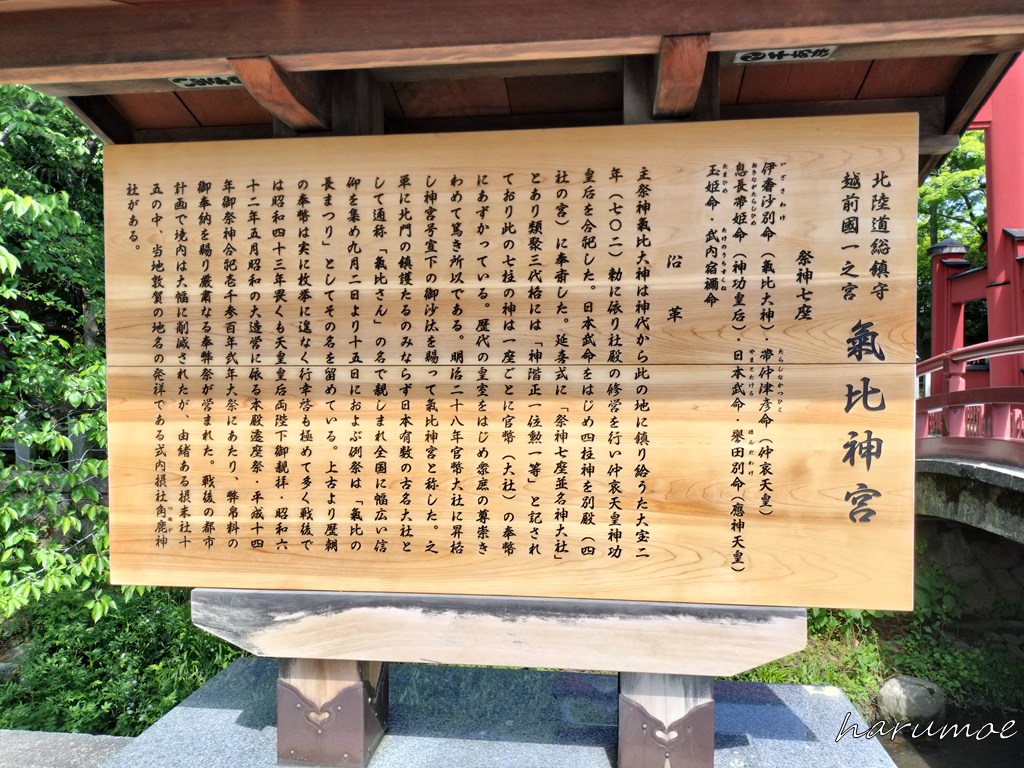 北陸道総鎮守
越前國一之宮
氣比神宮
祭神七座
伊奢沙別命（氣比大神）・帶仲津彦命（仲哀天皇）
いざさわけ
たらしなかつひこ
息長帶姫命（神功皇后）・日本武命・譽田別命（應神天皇）
おきながたらしひめ
やまとたける
ほんだわけ
玉姫命・武内宿禰命
たまひめ
たけのうちすくね
沿革
主祭神氣比大神は神代から此の地に鎮り給うた大宝二
年（七〇二）勅に依り社殿の修営を行い仲哀天皇神功
皇后を合祀した。日本武命をはじめ四柱神を別殿（四
社の宮）に奉齋した。延喜式に「祭神七座並名神大社」
とあり類聚三代格には「神階正一位勲一等」と記され
ており此の七柱の神は一座ごとに官幣（大社）の奉幣
にあずかっている。歴代の皇室をはじめ衆庶の尊崇き
わめて篤き所以である。明治二十八年官幣大社に昇格
し神宮号宣下の御沙汰を賜って氣比神宮と称した。之
単に北門の鎮護たるのみならず日本有数の古名大社と
して通称「氣比さん」の名で親しまれ全国に幅広い信
仰を集め九月二日より十五日におよぶ例祭は「氣比の
長まつり」としてその名を留めている。上古より歴朝
の奉幣は実に枚挙に遑なく行幸啓も極めて多く戦後で
は昭和四十三年畏くも天皇皇后両陛下御親拝・昭和六
十二年五月昭和の大造営に依る本殿遷座祭・平成十四
年御祭神合祀壱千参百年式年大祭にあたり、幣帛料の
御奉納を賜り厳粛なる奉幣祭が営まれた。戦後の都市
計画で境内は大幅に削減されたが、由緒ある摂末社十
五の中、当地敦賀の地名の発祥である式内摂社角鹿神
つぬが
社がある。
harumoe